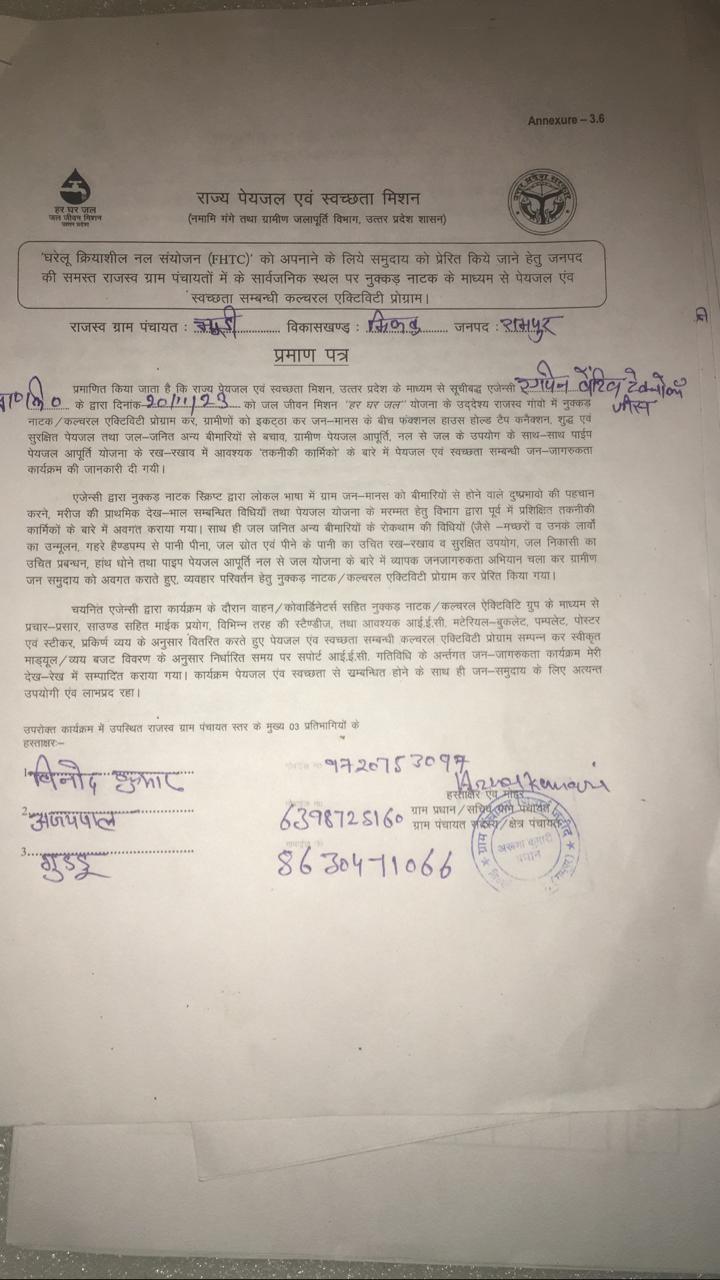 Annexure – 3.6
हर घर जल
जल जीवन मिशन
उत्तर प्रदेश
राज्य पेयजल एवं स्वच्छता मिशन
(नमामि गंगे तथा ग्रामीण जलापूर्ति विभाग, उत्तर प्रदेश शासन)
उत्तर प्रदेश सरकार
'घरेलू क्रियाशील नल संयोजन (FHTC)' को अपनाने के लिये समुदाय को प्रेरित किये जाने हेतु जनपद
की समस्त राजस्व ग्राम पंचायतों में के सार्वजनिक स्थल पर नुक्कड़ नाटक के माध्यम से पेयजल एंव
स्वच्छता सम्बन्धी कल्चरल एक्टिविटी प्रोग्राम।
राजस्व ग्राम पंचायत : विकासखण्ड : जनपद : रामपुर
प्रमाण पत्र
प्रमाणित किया जाता है कि राज्य पेयजल एवं स्वच्छता मिशन, उत्तर प्रदेश के माध्यम से सूचीबद्ध एजेन्सी
प्रा० लि० के द्वारा दिनांक 20/11/23 को जल जीवन मिशन "हर घर जल" योजना के उद्देश्य राजस्व गांवो में नुक्कड़
नाटक/कल्चरल एक्टिविटी प्रोग्राम कर, ग्रामीणों को इकट्ठा कर जन–मानस के बीच फंक्शनल हाउस होल्ड टैप कनैक्शन, शुद्ध एवं
सुरक्षित पेयजल तथा जल–जनित अन्य बीमारियों से बचाव, ग्रामीण पेयजल आपूर्ति, नल से जल के उपयोग के साथ–साथ पाईप
पेयजल आपूर्ति योजना के रख–रखाव में आवश्यक 'तकनीकी कार्मिको' के बारे में पेयजल एवं स्वच्छता सम्बन्धी जन–जागरुकता
कार्यक्रम की जानकारी दी गयी।
एजेन्सी द्वारा नुक्कड़ नाटक स्क्रिप्ट द्वारा लोकल भाषा में ग्राम जन–मानस को बीमारियों से होने वाले दुष्प्रभावो की पहचान
करने, मरीज की प्राथमिक देख–भाल सम्बन्धित विधियाँ तथा पेयजल योजना के मरम्मत हेतु विभाग द्वारा पूर्व में प्रशिक्षित तकनीकी
कार्मिकों के बारे में अवगत कराया गया। साथ ही जल जनित अन्य बीमारियों के रोकथाम की विधियों (जैसे –मच्छरों व उनके लार्वो
का उन्मूलन, गहरे हैण्डपम्प से पानी पीना, जल स्रोत एवं पीने के पानी का उचित रख–रखाव व सुरक्षित उपयोग, जल निकासी का
उचित प्रबन्धन, हांथ धोने तथा पाइप पेयजल आपूर्ति नल से जल योजना के बारे में व्यापक जनजागरुकता अभियान चला कर ग्रामीण
जन समुदाय को अवगत कराते हुए, व्यवहार परिवर्तन हेतु नुक्कड़ नाटक/कल्चरल एक्टिविटी प्रोग्राम कर प्रेरित किया गया।
चयनित एजेन्सी द्वारा कार्यक्रम के दौरान वाहन/कोवार्डिनेटर्स सहित नुक्कड़ नाटक/कल्चरल ऐक्टिविटि ग्रुप के माध्यम से
प्रचार–प्रसार, साउण्ड सहित माईक प्रयोग, विभिन्न तरह की स्टैण्डीज, तथा आवश्यक आई.ई.सी. मटेरियल–बुकलेट, पम्पलेट, पोस्टर
एवं स्टीकर, प्रकिर्ण व्यय के अनुसार वितरित करते हुए पेयजल एंव स्वच्छता सम्बन्धी कल्चरल एक्टिविटी प्रोग्राम सम्पन्न कर स्वीकृत
माड्यूल/व्यय बजट विवरण के अनुसार निर्धारित समय पर सपोर्ट आई.ई.सी. गतिविधि के अर्न्तगत जन–जागरुकता कार्यक्रम मेरी
देख–रेख में सम्पादित कराया गया। कार्यक्रम पेयजल एंव स्वच्छता से सम्बन्धित होने के साथ ही जन–समुदाय के लिए अत्यन्त
उपयोगी एंव लाभप्रद रहा।
उपरोक्त कार्यक्रम में उपस्थित राजस्व ग्राम पंचायत स्तर के मुख्य 03 प्रतिभागियों के
हस्ताक्षरः–
1. विनोद कुमार 9720753097
हस्ताक्षर एवं मोहर
2. अजयपाल 6398725160 ग्राम प्रधान/सचिव ग्राम पंचायत
ग्राम पंचायत सदस्य/क्षेत्र पंचायत
3. गुड्डू 8630471066
अरूणा कुमारी
प्रधान